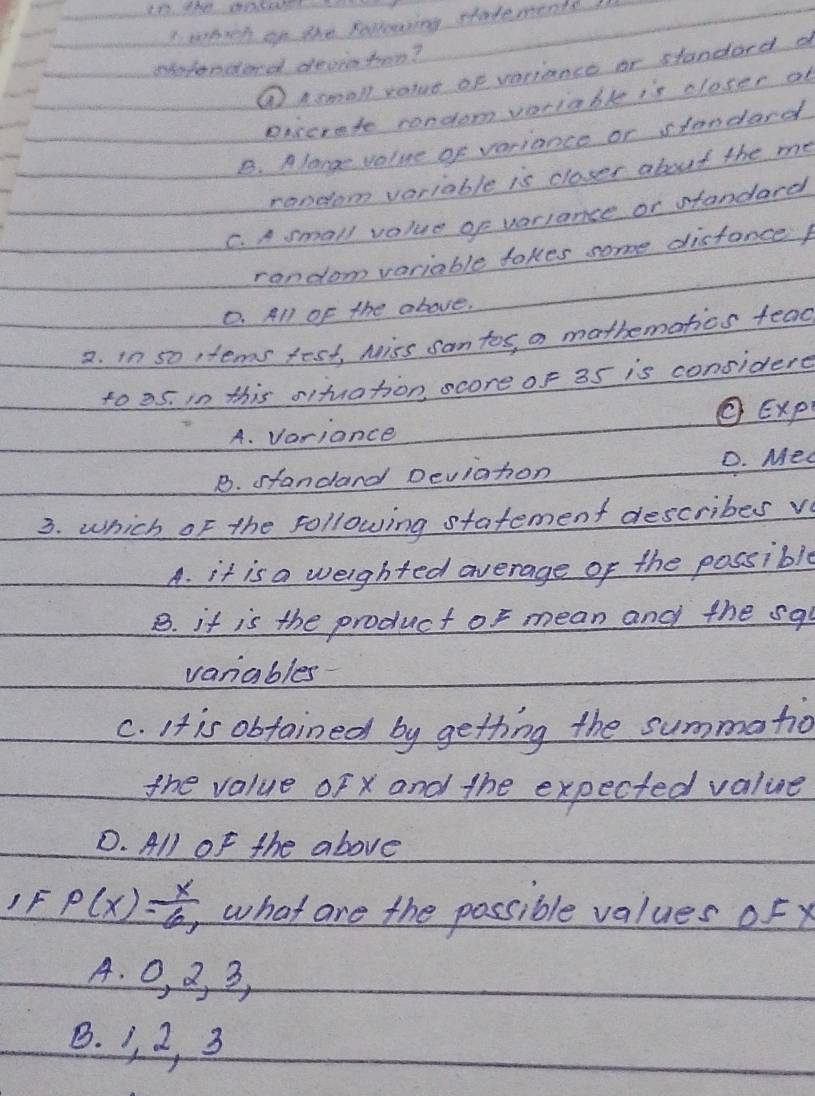 in the answer
1. which of the Following statements in
standard deviation?
Ⓐ A small value of variance or standard d
Discrete random variable is closer ab
B. A large value of variance or standard
random variable is closer about the me
C. A small value of variance or standard
random variable takes some distance F
D. All of the above.
2. in 50 items test, Miss Santos, a mathematics teac
to 35. in this situation, score of 35 is considere
A. Variance
Ⓒ Exp
B. Standard Deviation
D. Mec
3. which of the Following statement describes v
A. it is a weighted average of the possible
B. it is the product of mean and the squ
variables
C. it is obtained by getting the summatio
the value of X and the expected value
D. All of the above
IF P(X) = x/6, what are the possible values of X
A. 0, 2, 3,
B. 1, 2, 3